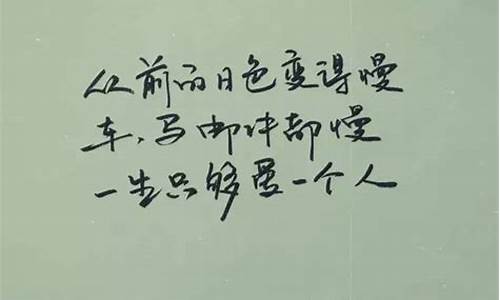 从前的日色变得慢
车、马邮件都慢
一生只够爱一个人